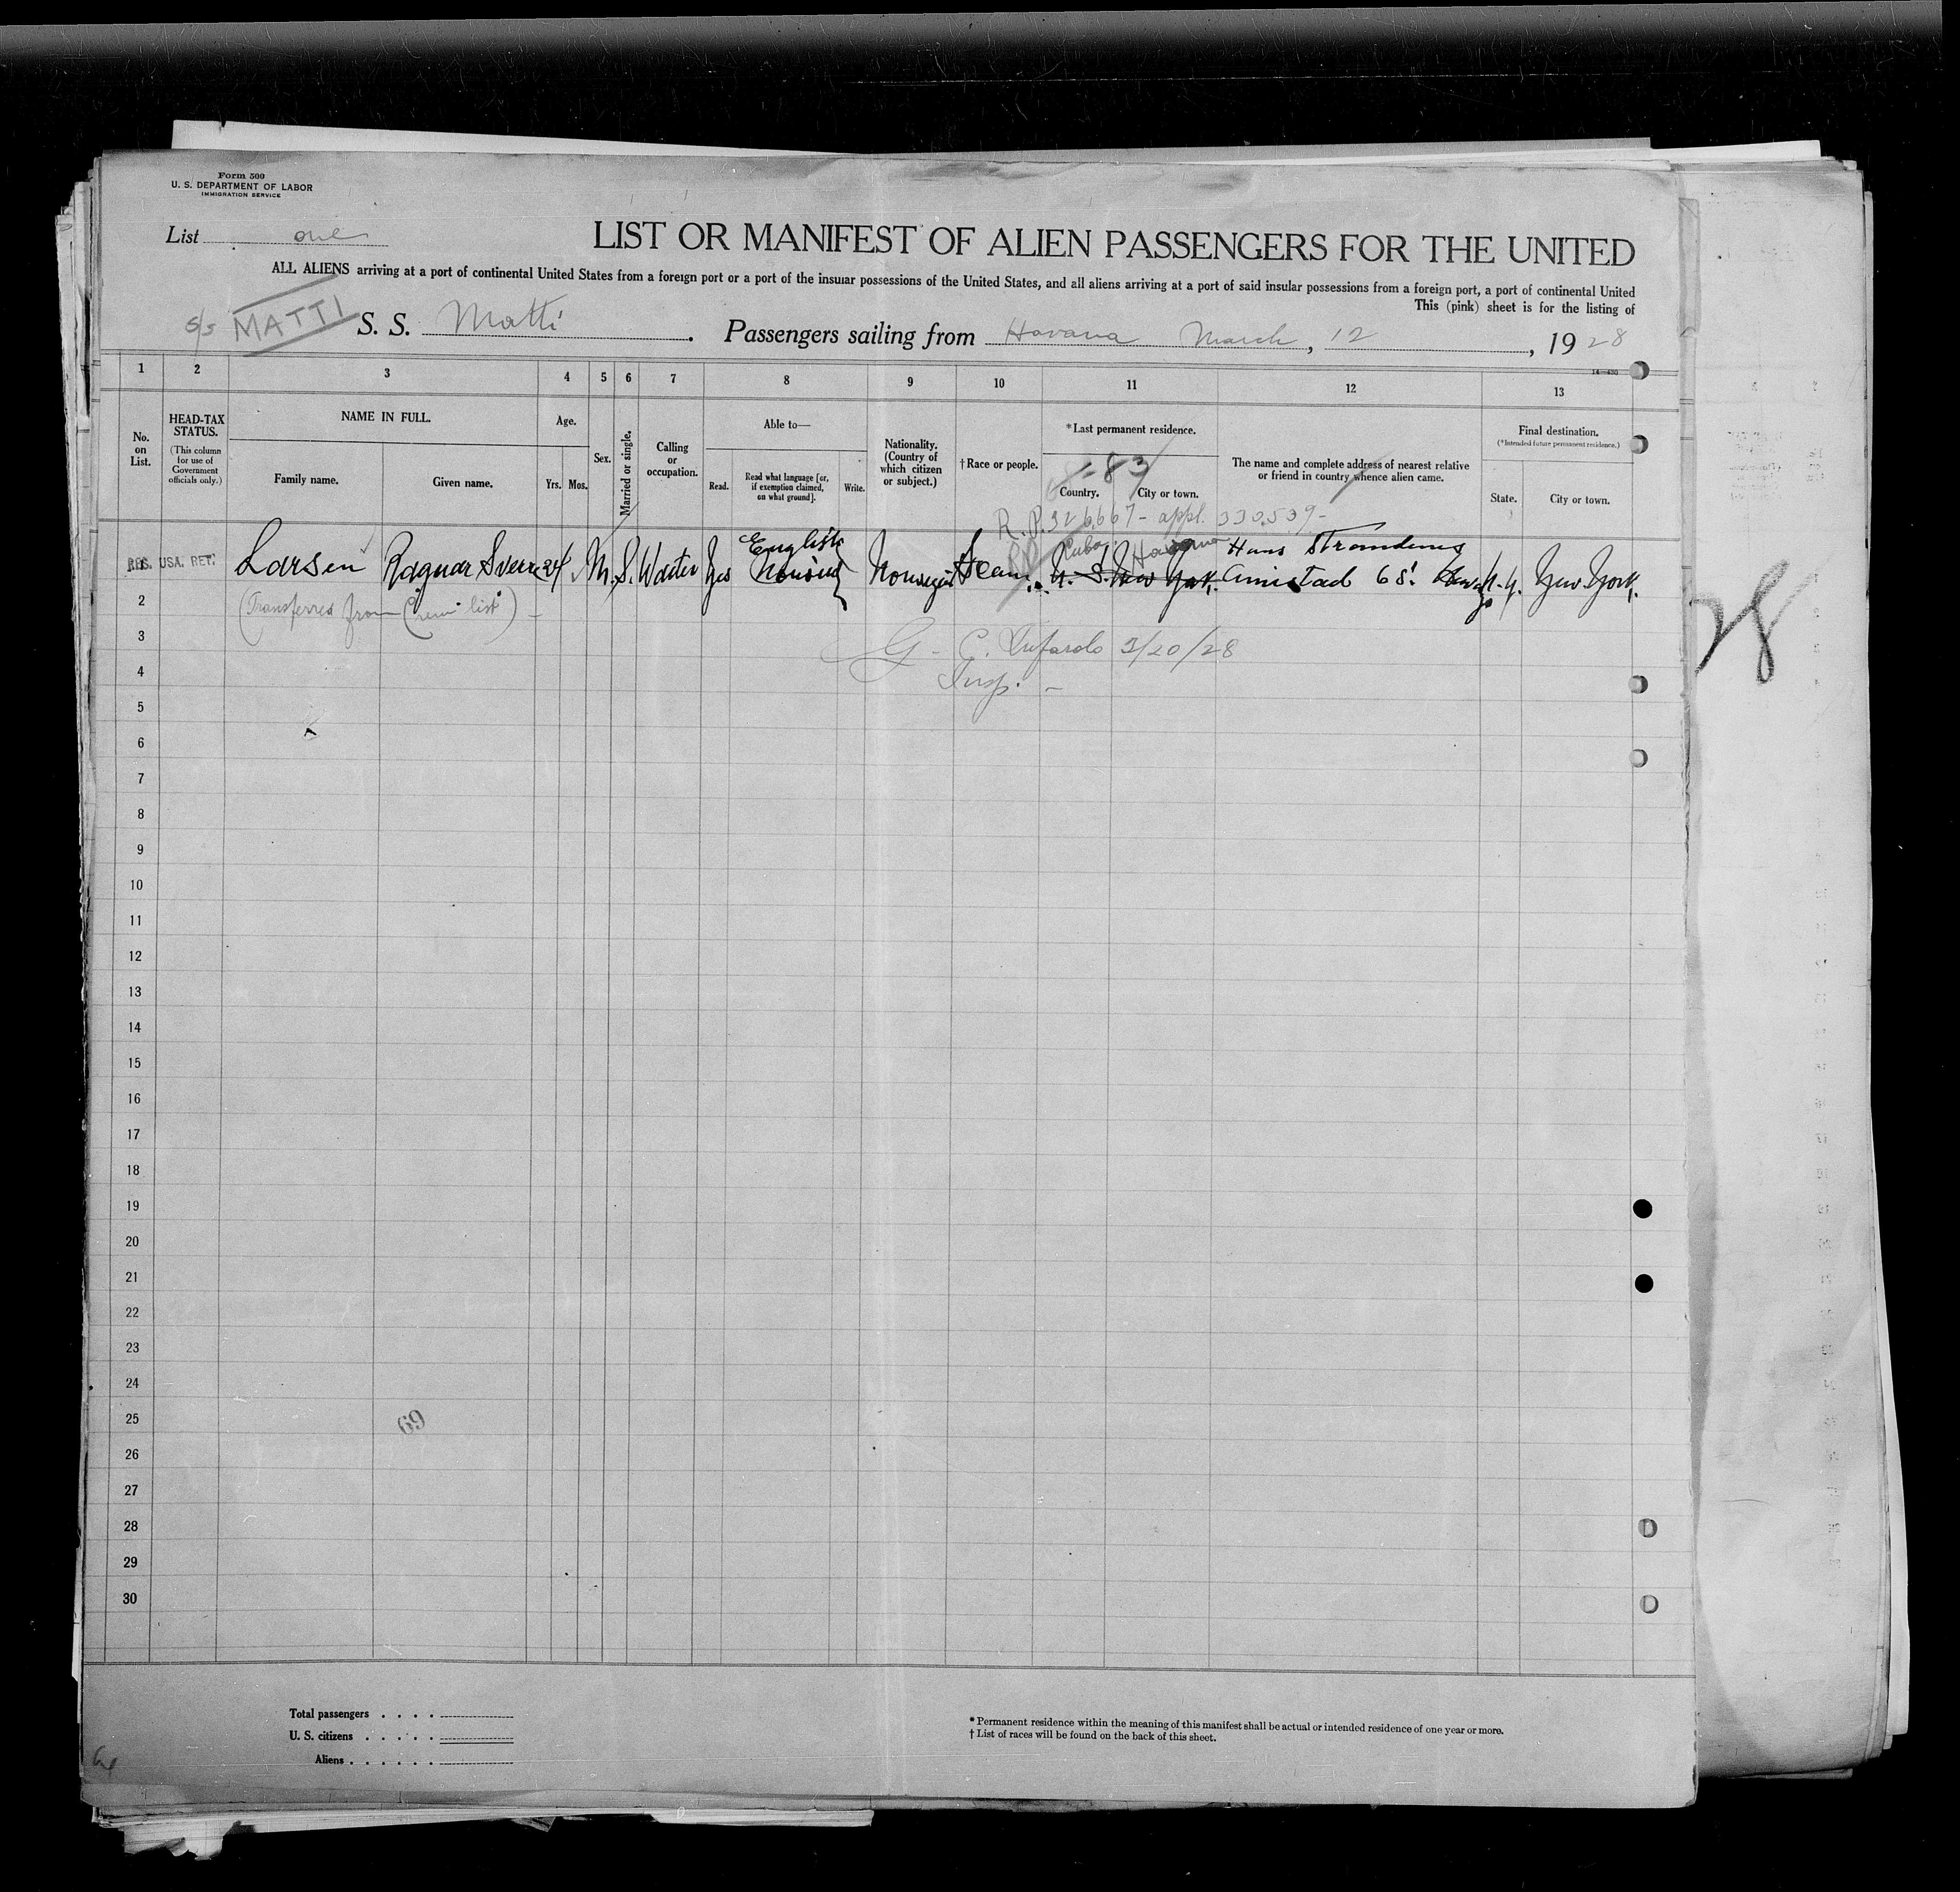 Form 500
U. S. DEPARTMENT OF LABOR
IMMIGRATION SERVICE
List one
LIST OR MANIFEST OF ALIEN PASSENGERS FOR THE UNITED
ALL ALIENS arriving at a port of continental United States from a foreign port or a port of the insular possessions of the United States, and all aliens arriving at a port of said insular possessions from a foreign port, a port of continental United
This (pink) sheet is for the listing of
S/S MATTI S. S. Matti. Passengers sailing from Havana March, 12, 1928
14—430
1 2 3 4 5 6 7 8 9 10 11 12 13
No. on List.
HEAD-TAX STATUS.
(This column for use of Government officials only.)
NAME IN FULL.
Family name.
Given name.
Age.
Yrs. Mos.
Sex.
Married or single.
Calling or occupation.
Able to—
Read.
Read what language [or, if exemption claimed, on what ground].
Write.
Nationality. (Country of which citizen or subject.)
†Race or people.
*Last permanent residence.
Country.
City or town.
The name and complete address of nearest relative or friend in country whence alien came.
Final destination.
(*Intended future permanent residence.)
State.
City or town.
83
R.P. 326,667 - appl. 330,539 -
English Cuba Havana Hans
1 RES. USA. RET. Larsen Ragnar Sverre 24 M. S. Waiter Yes Norwegian Scan. U. S. New York. Amistad 68. N.Y. New York.
2 (Transferred from Crew list) -
3 G - C. 3/20/28
4 Insp. -
5
6
7
8
9
10
11
12
13
14
15
16
17
18
19
20
21
22
23
24
25
69
26
27
28
29
30
28
Total passengers
U. S. citizens
Aliens
* Permanent residence within the meaning of this manifest shall be actual or intended residence of one year or more.
† List of races will be found on the back of this sheet.